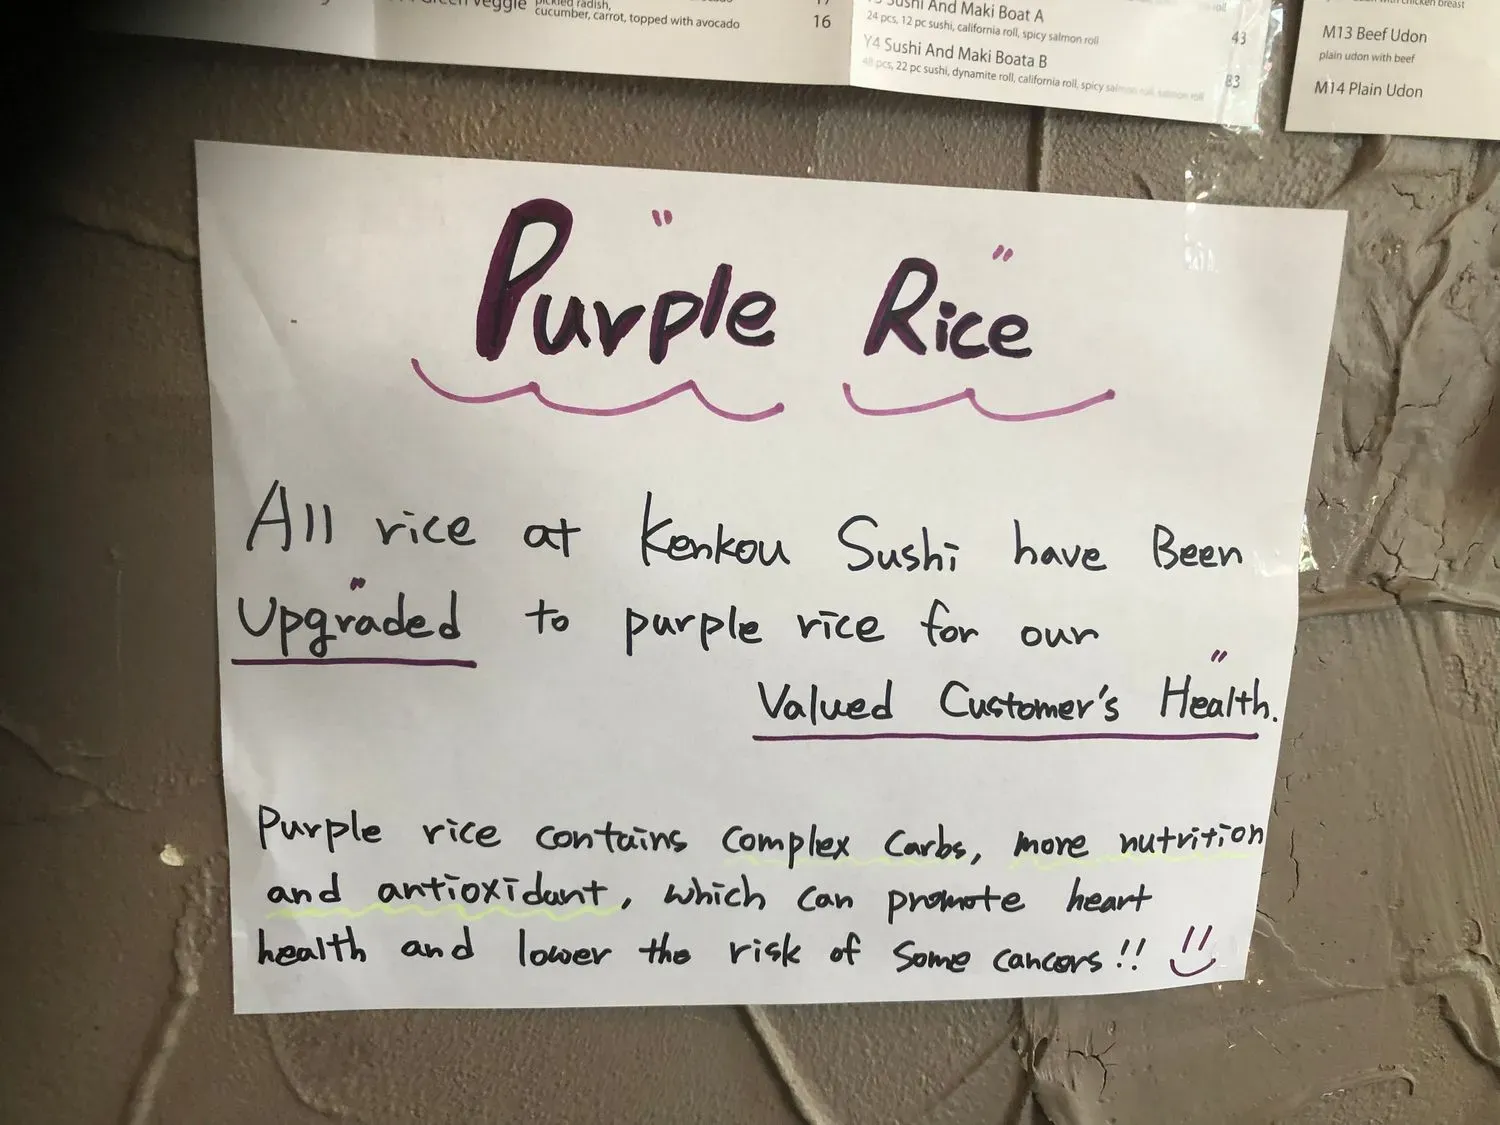 Green Veggie pickled radish,
cucumber, carrot, topped with avocado 16
Sushi And Maki Boat A
24 pcs, 12 pc sushi, california roll, spicy salmon roll 43
Y4 Sushi And Maki Boata B
48 pcs, 22 pc sushi, dynamite roll, california roll, spicy salmon roll, salmon roll 83
with chicken breast
M13 Beef Udon
plain udon with beef
M14 Plain Udon
Purple Rice
All rice at Kenkou Sushi have Been
Upgraded to purple rice for our
Valued Customer's Health.
Purple rice contains complex carbs, more nutrition
and antioxidant, which can promote heart
health and lower the risk of some cancers!!